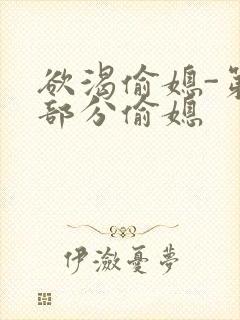 欲渴偷媳-第
部分偷媳
伊激憂夢